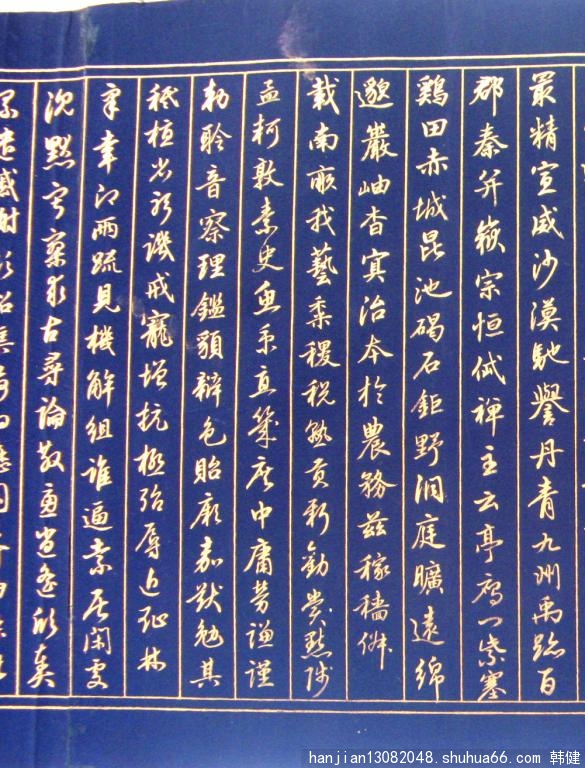 最精宣威沙漠馳譽丹青九州禹跡百
郡秦并嶽宗恒岱禅主云亭雁门紫塞
鷄田赤城昆池碣石鉅野洞庭曠遠綿
邈巖岫杳冥治本於農務茲稼穡俶
載南畝我藝黍稷稅熟貢新勸賞黜陟
孟軻敦素史魚秉直幾庶中庸勞謙謹
勑聆音察理鑑貌辯色貽厥嘉猷勉其
祗植省躬譏戒寵增抗極殆辱近耻林
皋幸即兩疏見機解組誰逼索居閑處
沉默寂寥求古尋論散慮逍遙欣奏
累遣慼謝歡招渠荷的歷園莽抽條
hanjian13082048.shuhua66.com 韩健